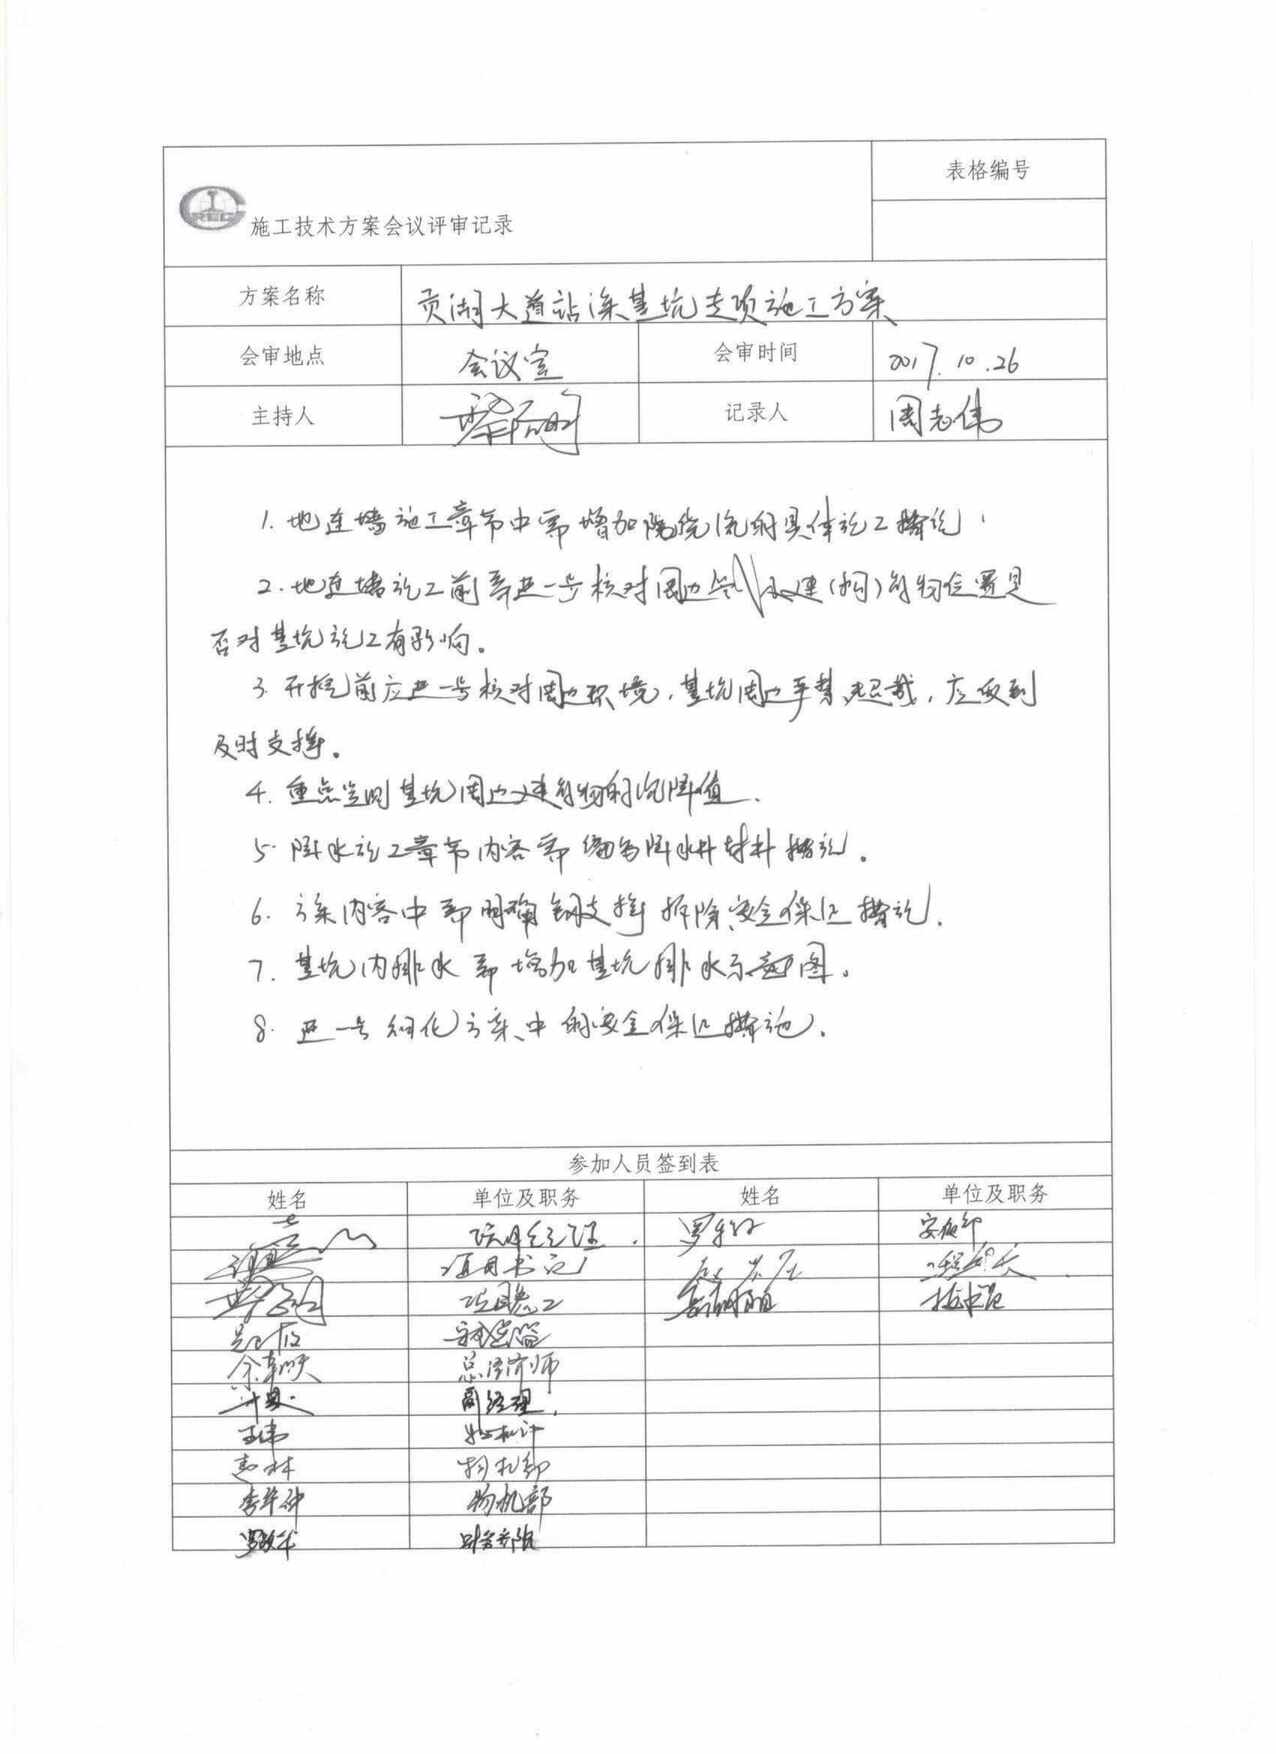 表格编号
施工技术方案会议评审记录
方案名称 贡湖大道站深基坑专项施工方案
会审地点 会议室 会审时间 2017.10.26
主持人 记录人 周志伟
1. 地连墙施工章节中需增加防绕流的具体施工措施。
2. 地连墙施工前需进一步核对周边管线及建(构)筑物位置是
否对基坑施工有影响。
3. 开挖前应进一步核对周边环境,基坑周边严禁超载,应做到
及时支撑。
4. 重点监测基坑周边建筑物的沉降值.
5. 降水施工章节内容需 降水井材料措施。
6. 方案内容中需明确钢支撑拆除安全保证措施.
7. 基坑内排水需增加基坑排水示意图。
8. 进一步细化方案中的安全保证措施.
参加人员签到表
姓名 单位及职务 姓名 单位及职务
项目经理. 安质部
项目书记
项目总工
安全总监
余 总经济师
副经理.
王伟
物机部
李 物机部
财务部